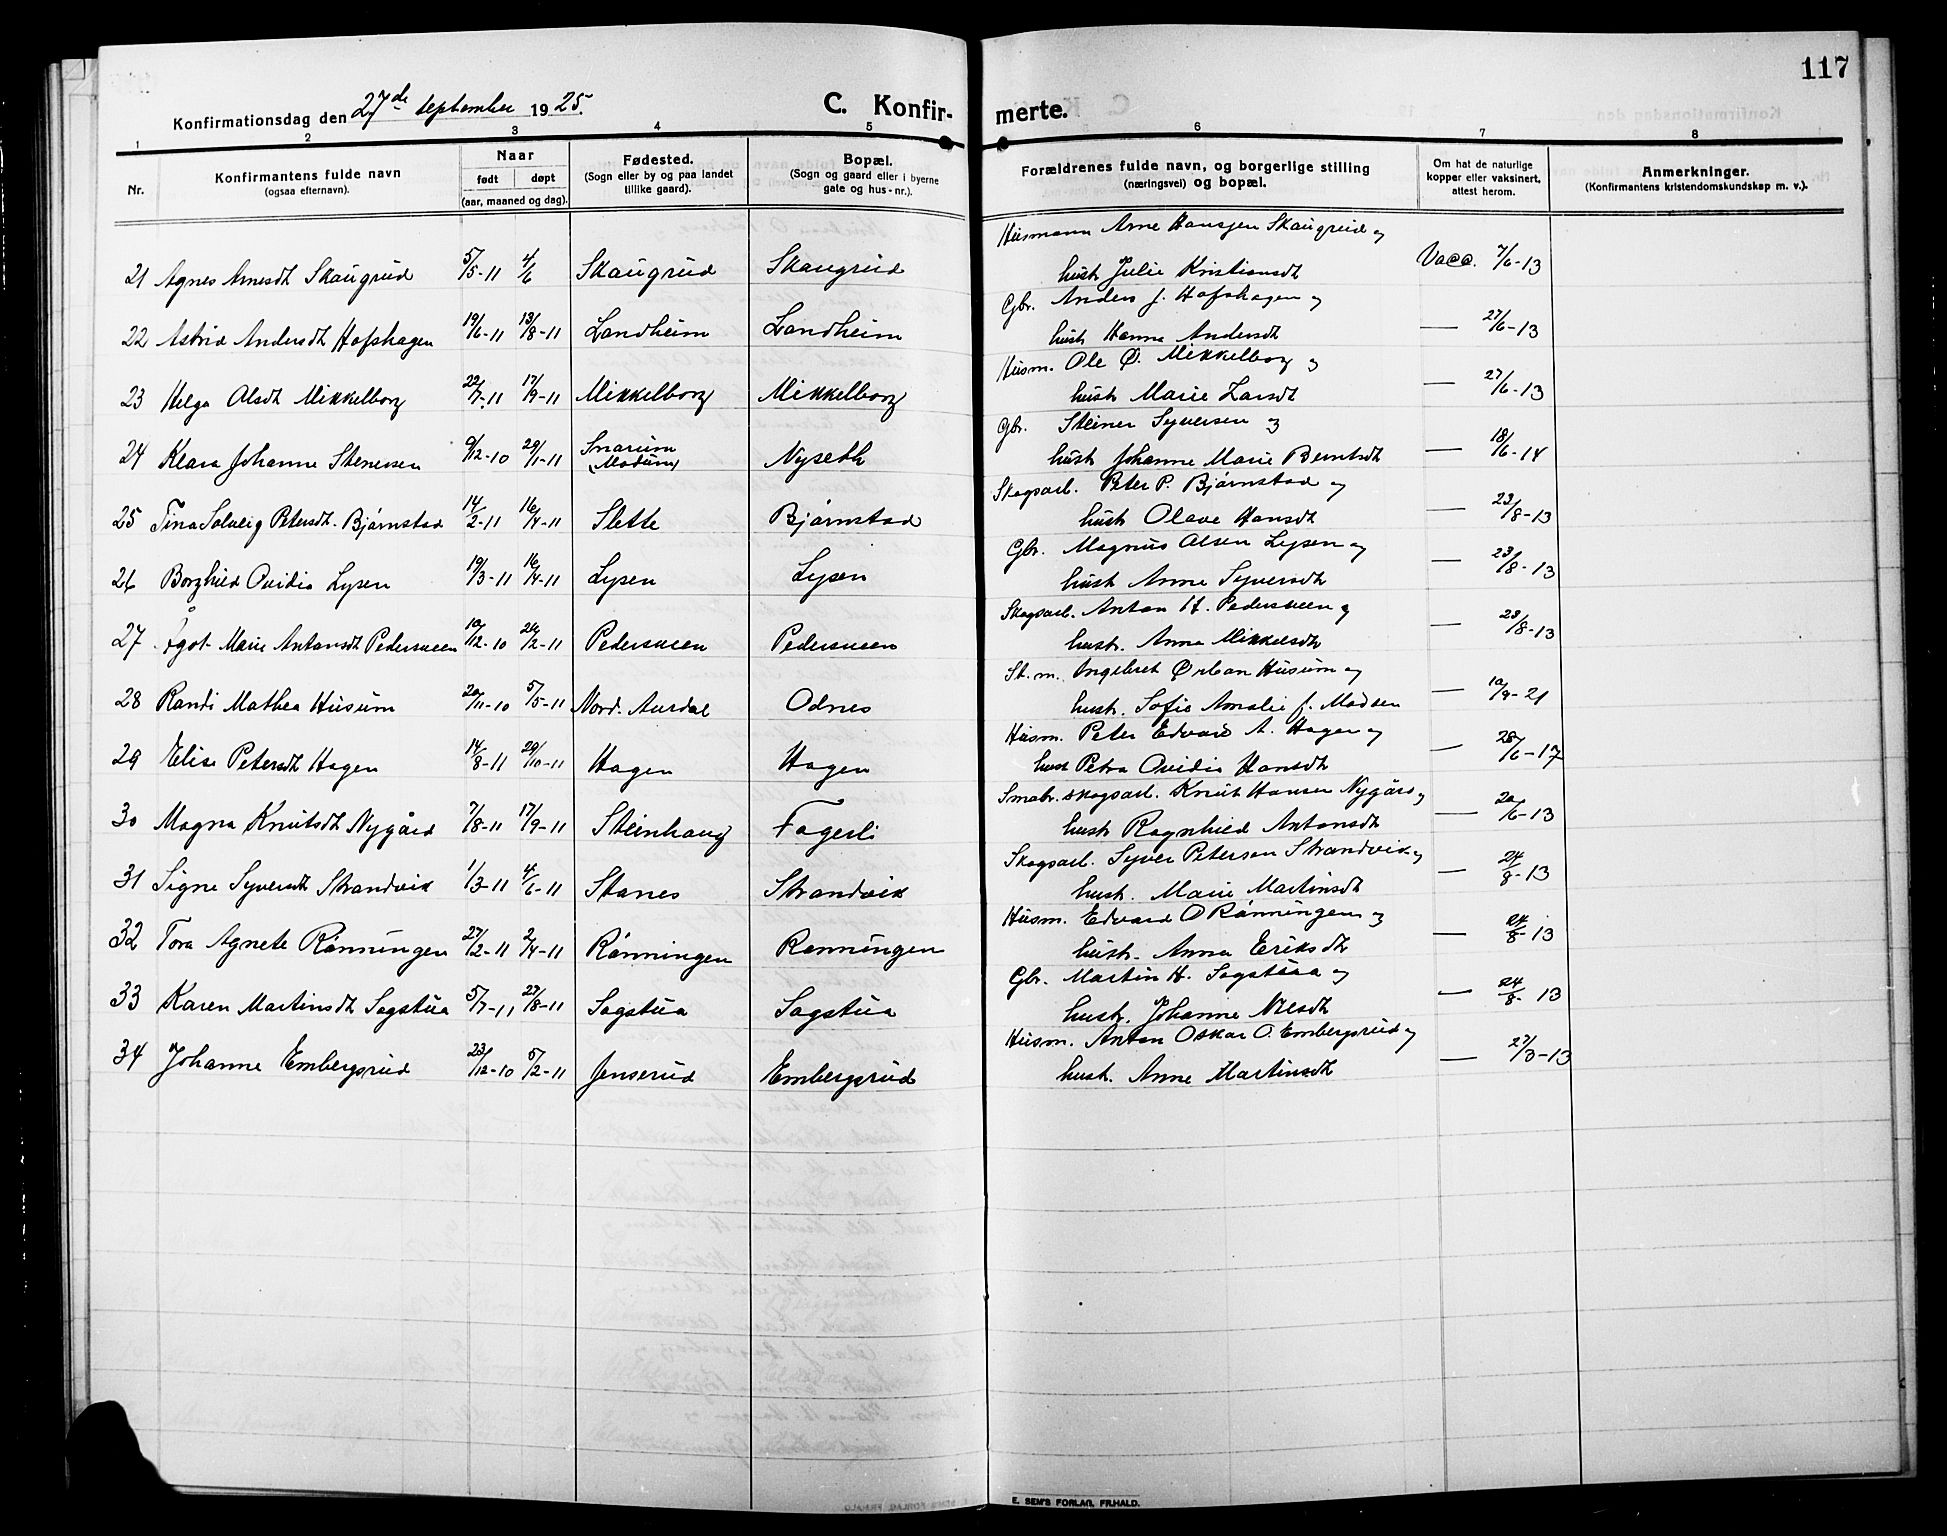 117
Konfirmationsdag den 27de september 1925.
C. Konfir- merte.
1 2 3 4 5 6 7 8
Nr.
Konfirmantens fulde navn
(ogsaa efternavn).
Naar
født døpt
(aar, maaned og dag).
Fødested.
(Sogn eller by og paa landet
tillike gaard).
Bopæl.
(Sogn og gaard eller i byerne
gate og hus-nr.).
Forældrenes fulde navn, og borgerlige stilling
(næringsvei) og bopæl.
Om hat de naturlige
kopper eller vaksinert,
attest herom.
Anmerkninger.
(Konfirmantens kristendomskundskap m. v.).
Husmann Arne Hansen Skaugrud og
21 Agnes Arnesdt Skaugrud 5/5-11 4/6 Skaugrud Skaugrud hust Julie Kristiansdt Vacc. 7/6-13
Gbr. Anders J. Hofshagen og
22 Astrid Andersdt Hofshagen 19/6-11 13/8-11 Landheim Landheim hust Hanna Andersdt — 27/6-13
Husm. Ole Ø. Mikkelborg og
23 Helga Olsdt Mikkelborg 22/7-11 17/9-11 Mikkelborg Mikkelborg hust Marie Larsdt — 27/6-13
Gbr. Steiner Syversen og
24 Klara Johanne Stenersen 9/12-10 29/1-11 Snarum (Modum) Nyseth hust Johanne Marie Berntsdt — 18/6-14
Skogsarb. Peter P. Bjørnstad og
25 Tina Solveig Petersdt. Bjørnstad 14/2-11 16/4-11 Slette Bjørnstad hust Olave Hansdt — 23/8-13
Gbr. Magnus Olsen Lysen og
26 Borghild Ovidia Lysen 19/3-11 16/4-11 Lysen Lysen hust Anne Syversdt — 23/8-13
Skogsarb. Anton H. Pedersveen og
27 Ågot Marie Antonsdt Pedersveen 10/12-10 26/2-11 Pedersveen Pedersveen hust. Anna Mikkelsdt — 28/8-13
St.m. Ingebret Ørban Husum og
28 Randi Mathea Husum 20/11-10 5/5-11 Nord. Aurdal Odnes hust. Sofie Amalie f. Madsen — 10/9-21
Husm. Peter Edvard A. Hagen og
29 Elise Petersdt Hagen 14/8-11 29/10-11 Hagen Hagen hust Petra Ovidia Hansdt — 28/6-17
Smabr. skogsarb. Knut Hansen Nygård og
30 Magna Knutsdt Nygård 7/8-11 17/9-11 Steinhaug Fagerli hust Ragnhild Antonsdt — 20/6-13
Skogsarb. Syver Petersen Strandvik og
31 Signe Syversdt Strandvik 1/3-11 4/6-11 Stanes Strandvik hust. Marie Martinsdt — 24/8-13
Husm. Edvard O Rønningen og
32 Tora Agnete Rønningen 27/2-11 2/4-11 Rønningen Rønningen hust. Anna Eriksdt — 24/8-13
Gbr. Martin H. Sagstuaa og
33 Karen Martinsdt Sagstua 5/7-11 27/8-11 Sagstua Sagstua hust. Johanne Nilsdt — 24/8-13
Husm. Anton Oskar O. Embergsrud og
34 Johanne Embergsrud 23/12-10 5/2-11 Jenserud Embergsrud hust. Anne Martinsdt — 27/3-13
E. SEM'S FORLAG, FR.HALD.